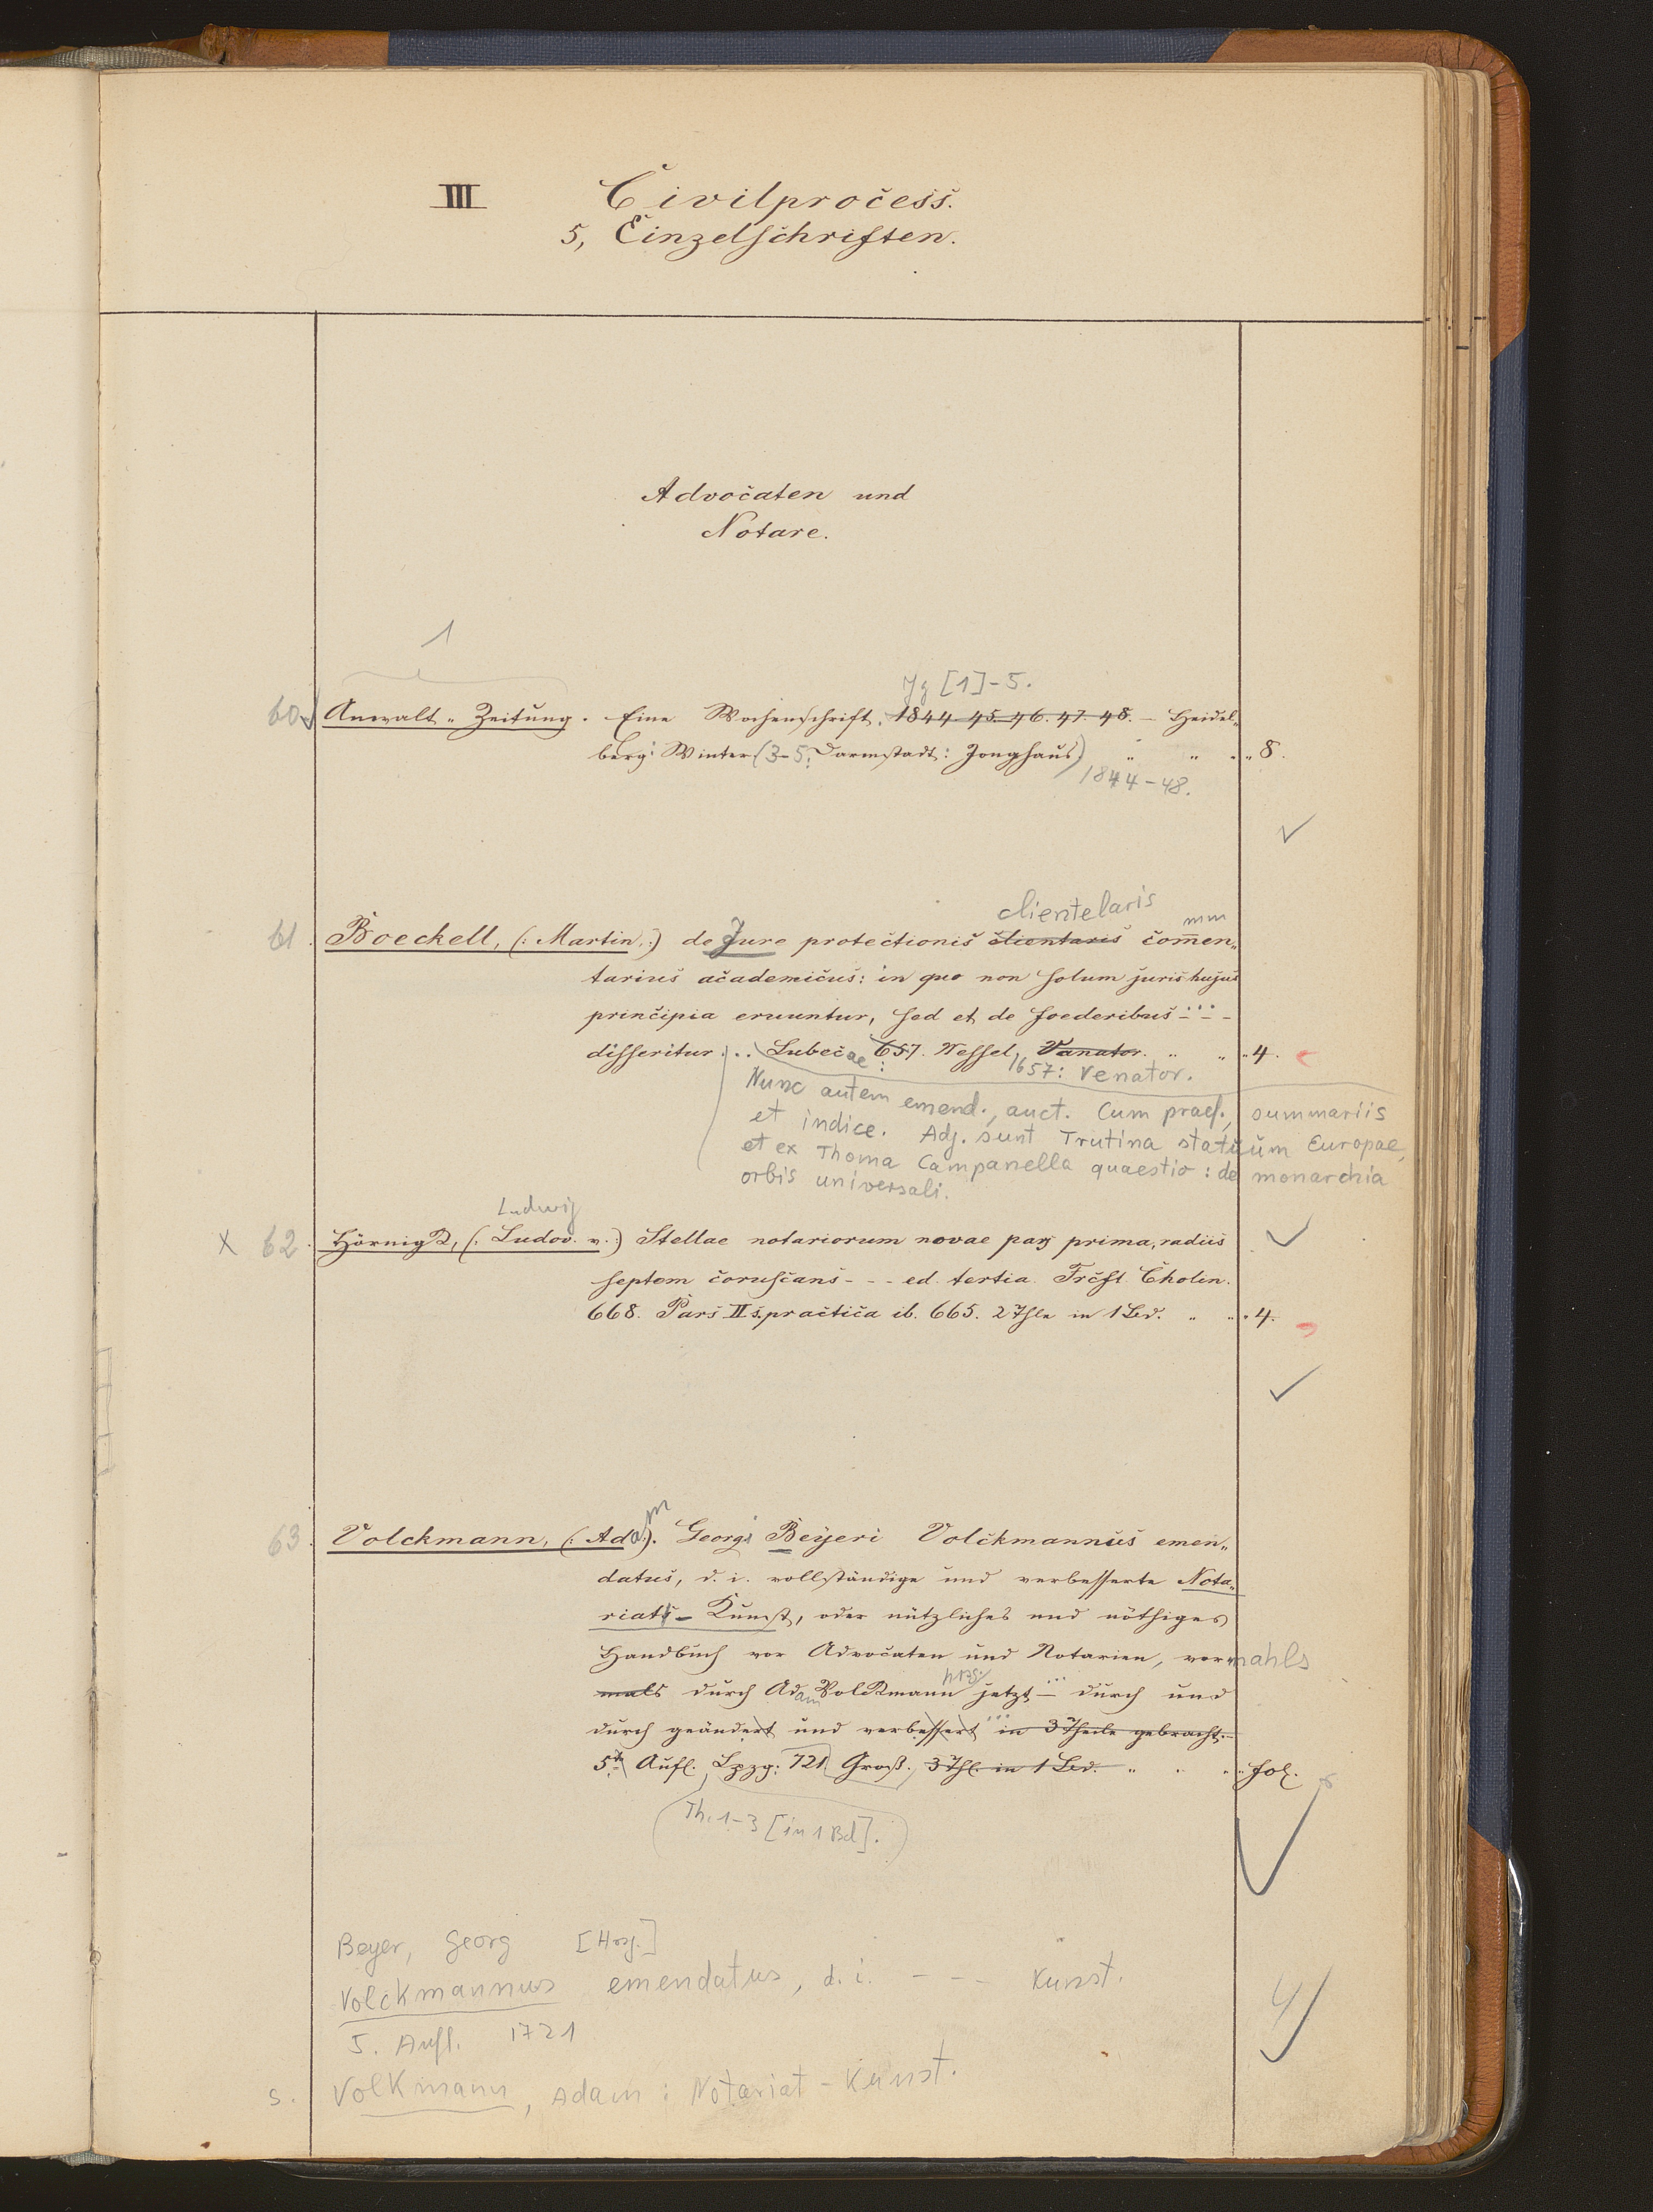 III Civilprocess.
5, Einzelschriften.
Advocaten und
Notare.
1
Jg [1]-5.
60. Anwalt-Zeitung. Eine Wochenschrift. 1844. 45. 46. 47. 48. – Heidel-
berg: Winter (3-5: Darmstadt: Jonghaus) " " " 8.
1844-48.
clientelaris mm
61. Boeckell, (: Martin :) de Jure protectionis clientaris com̅en-
tarius academicus: in quo non solum juris hujus
principia eruuntur, sed et de foederibus - - -
disseritur. .. Lubecae: 657. Wessel, Vanator. " " " 4.
1657: Venator.
Nunc autem emend., auct. Cum praef., summariis
et indice. Adj. sunt Trutina statuum Europae,
et ex Thoma Campanella quaestio: de monarchia
orbis universali.
Ludwig
x 62. Hörnigk, (: Ludov. v. :) Stellae notariorum novae pars prima, radiis
septem coruscans - - - ed. tertia. Frcft. Cholin.
668. Pars II s. practica ib. 665. 2 Thle in 1 Bd. " " " 4.
63. Volckmann, (: Adam :). Georgi Beyeri Volckmannus emen-
datus, d. i. vollständige und verbesserte Nota-
riats-Kunst, oder nützliches und nöthiges
Handbuch vor Advocaten und Notarien, vormahls
mals durch Adam Volkmann jetzt – durch und
durch geändert und verbessert ... in 3 Theile gebracht. –
5te Aufl. Lpzg: 721 Groß. 3 Thl. in 1 Bd. " " " fol.
Th. 1-3 [in 1 Bd].
Beyer, Georg [Hrsg.]
Volckmannus emendatus, d. i. - - - Kunst.
5. Aufl. 1721
4
s. Volkmann, Adam: Notariat-Kunst.